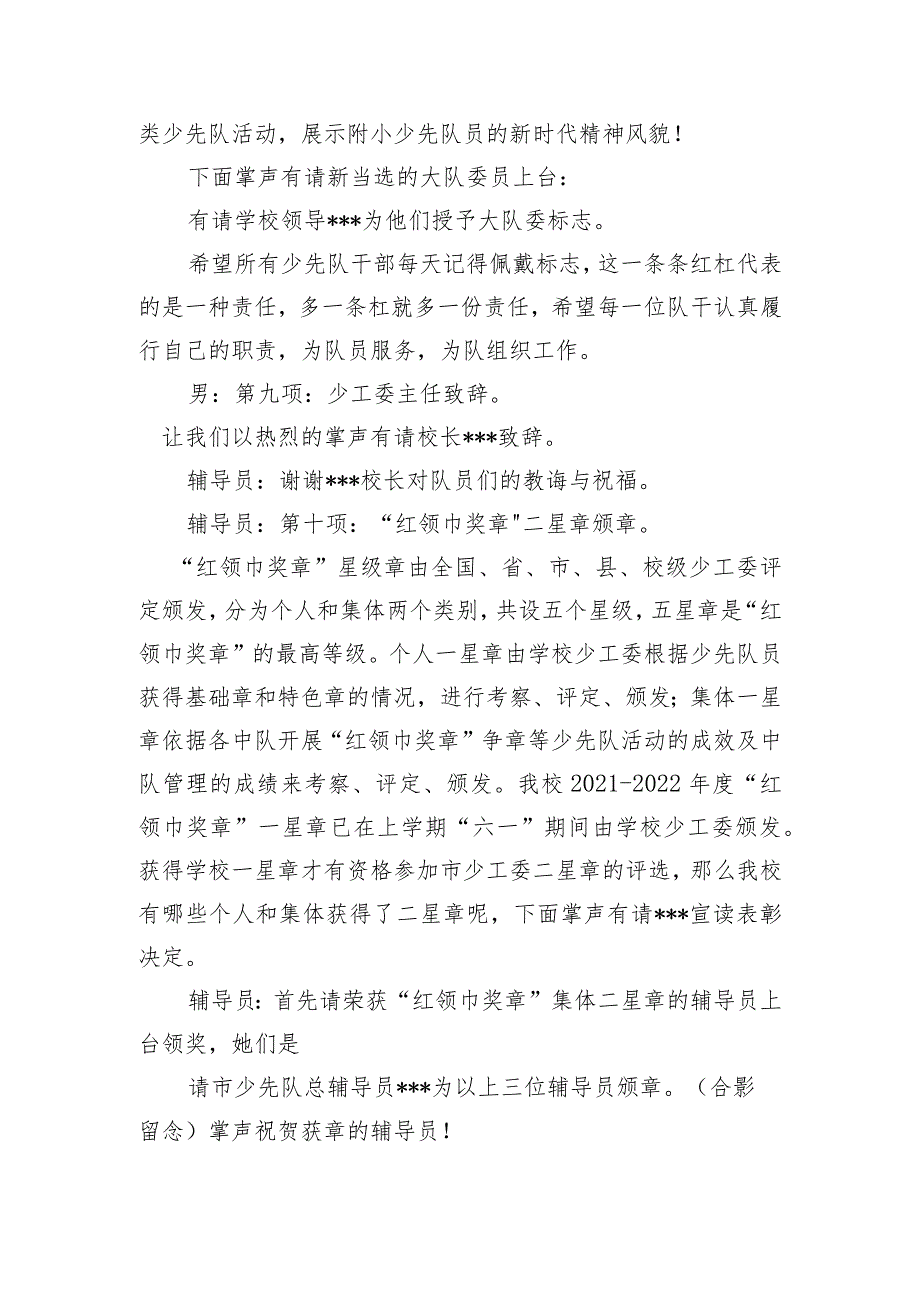 类少先队活动，展示附小少先队员的新时代精神风貌！
下面掌声有请新当选的大队委员上台：
有请学校领导***为他们授予大队委标志。
希望所有少先队干部每天记得佩戴标志，这一条条红杠代表
的是一种责任，多一条杠就多一份责任，希望每一位队干认真履
行自己的职责，为队员服务，为队组织工作。
男：第九项：少工委主任致辞。
让我们以热烈的掌声有请校长***致辞。
辅导员：谢谢***校长对队员们的教诲与祝福。
辅导员：第十项：“红领巾奖章"二星章颁章。
“红领巾奖章”星级章由全国、省、市、县、校级少工委评
定颁发，分为个人和集体两个类别，共设五个星级，五星章是“红
领巾奖章”的最高等级。个人一星章由学校少工委根据少先队员
获得基础章和特色章的情况，进行考察、评定、颁发；集体一星
章依据各中队开展“红领巾奖章”争章等少先队活动的成效及中
队管理的成绩来考察、评定、颁发。我校2021-2022年度“红
领巾奖章”一星章已在上学期“六一”期间由学校少工委颁发。
获得学校一星章才有资格参加市少工委二星章的评选，那么我校
有哪些个人和集体获得了二星章呢，下面掌声有请***宣读表彰
决定。
辅导员：首先请荣获“红领巾奖章”集体二星章的辅导员上
台领奖，她们是
请市少先队总辅导员***为以上三位辅导员颁章。（合影
留念）掌声祝贺获章的辅导员！